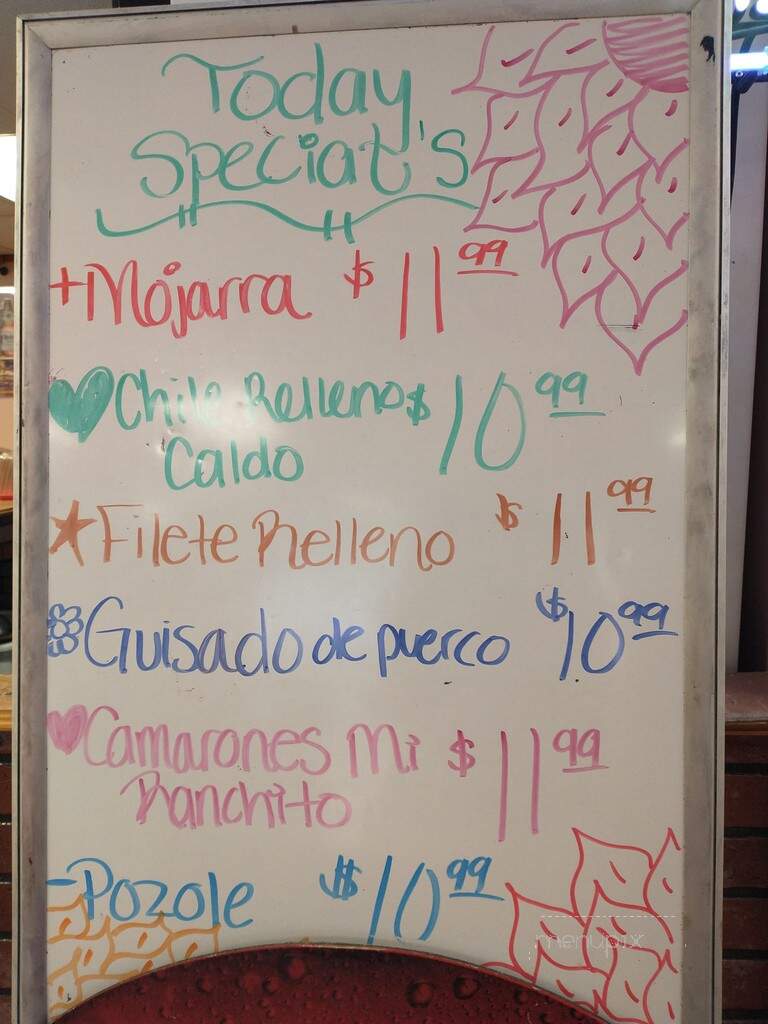 Today
Special's
+Mojarra $11.99
Chile Relleno $10.99
Caldo
Filete Relleno $11.99
Guisado de puerco $10.99
Camarones Mi $11.99
Ranchito
-Pozole $10.99
menupix